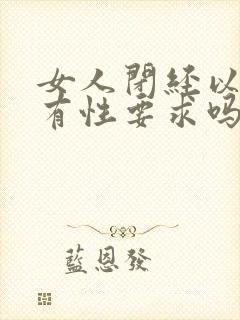 女人閉経以
有性要求吗
藍恩發